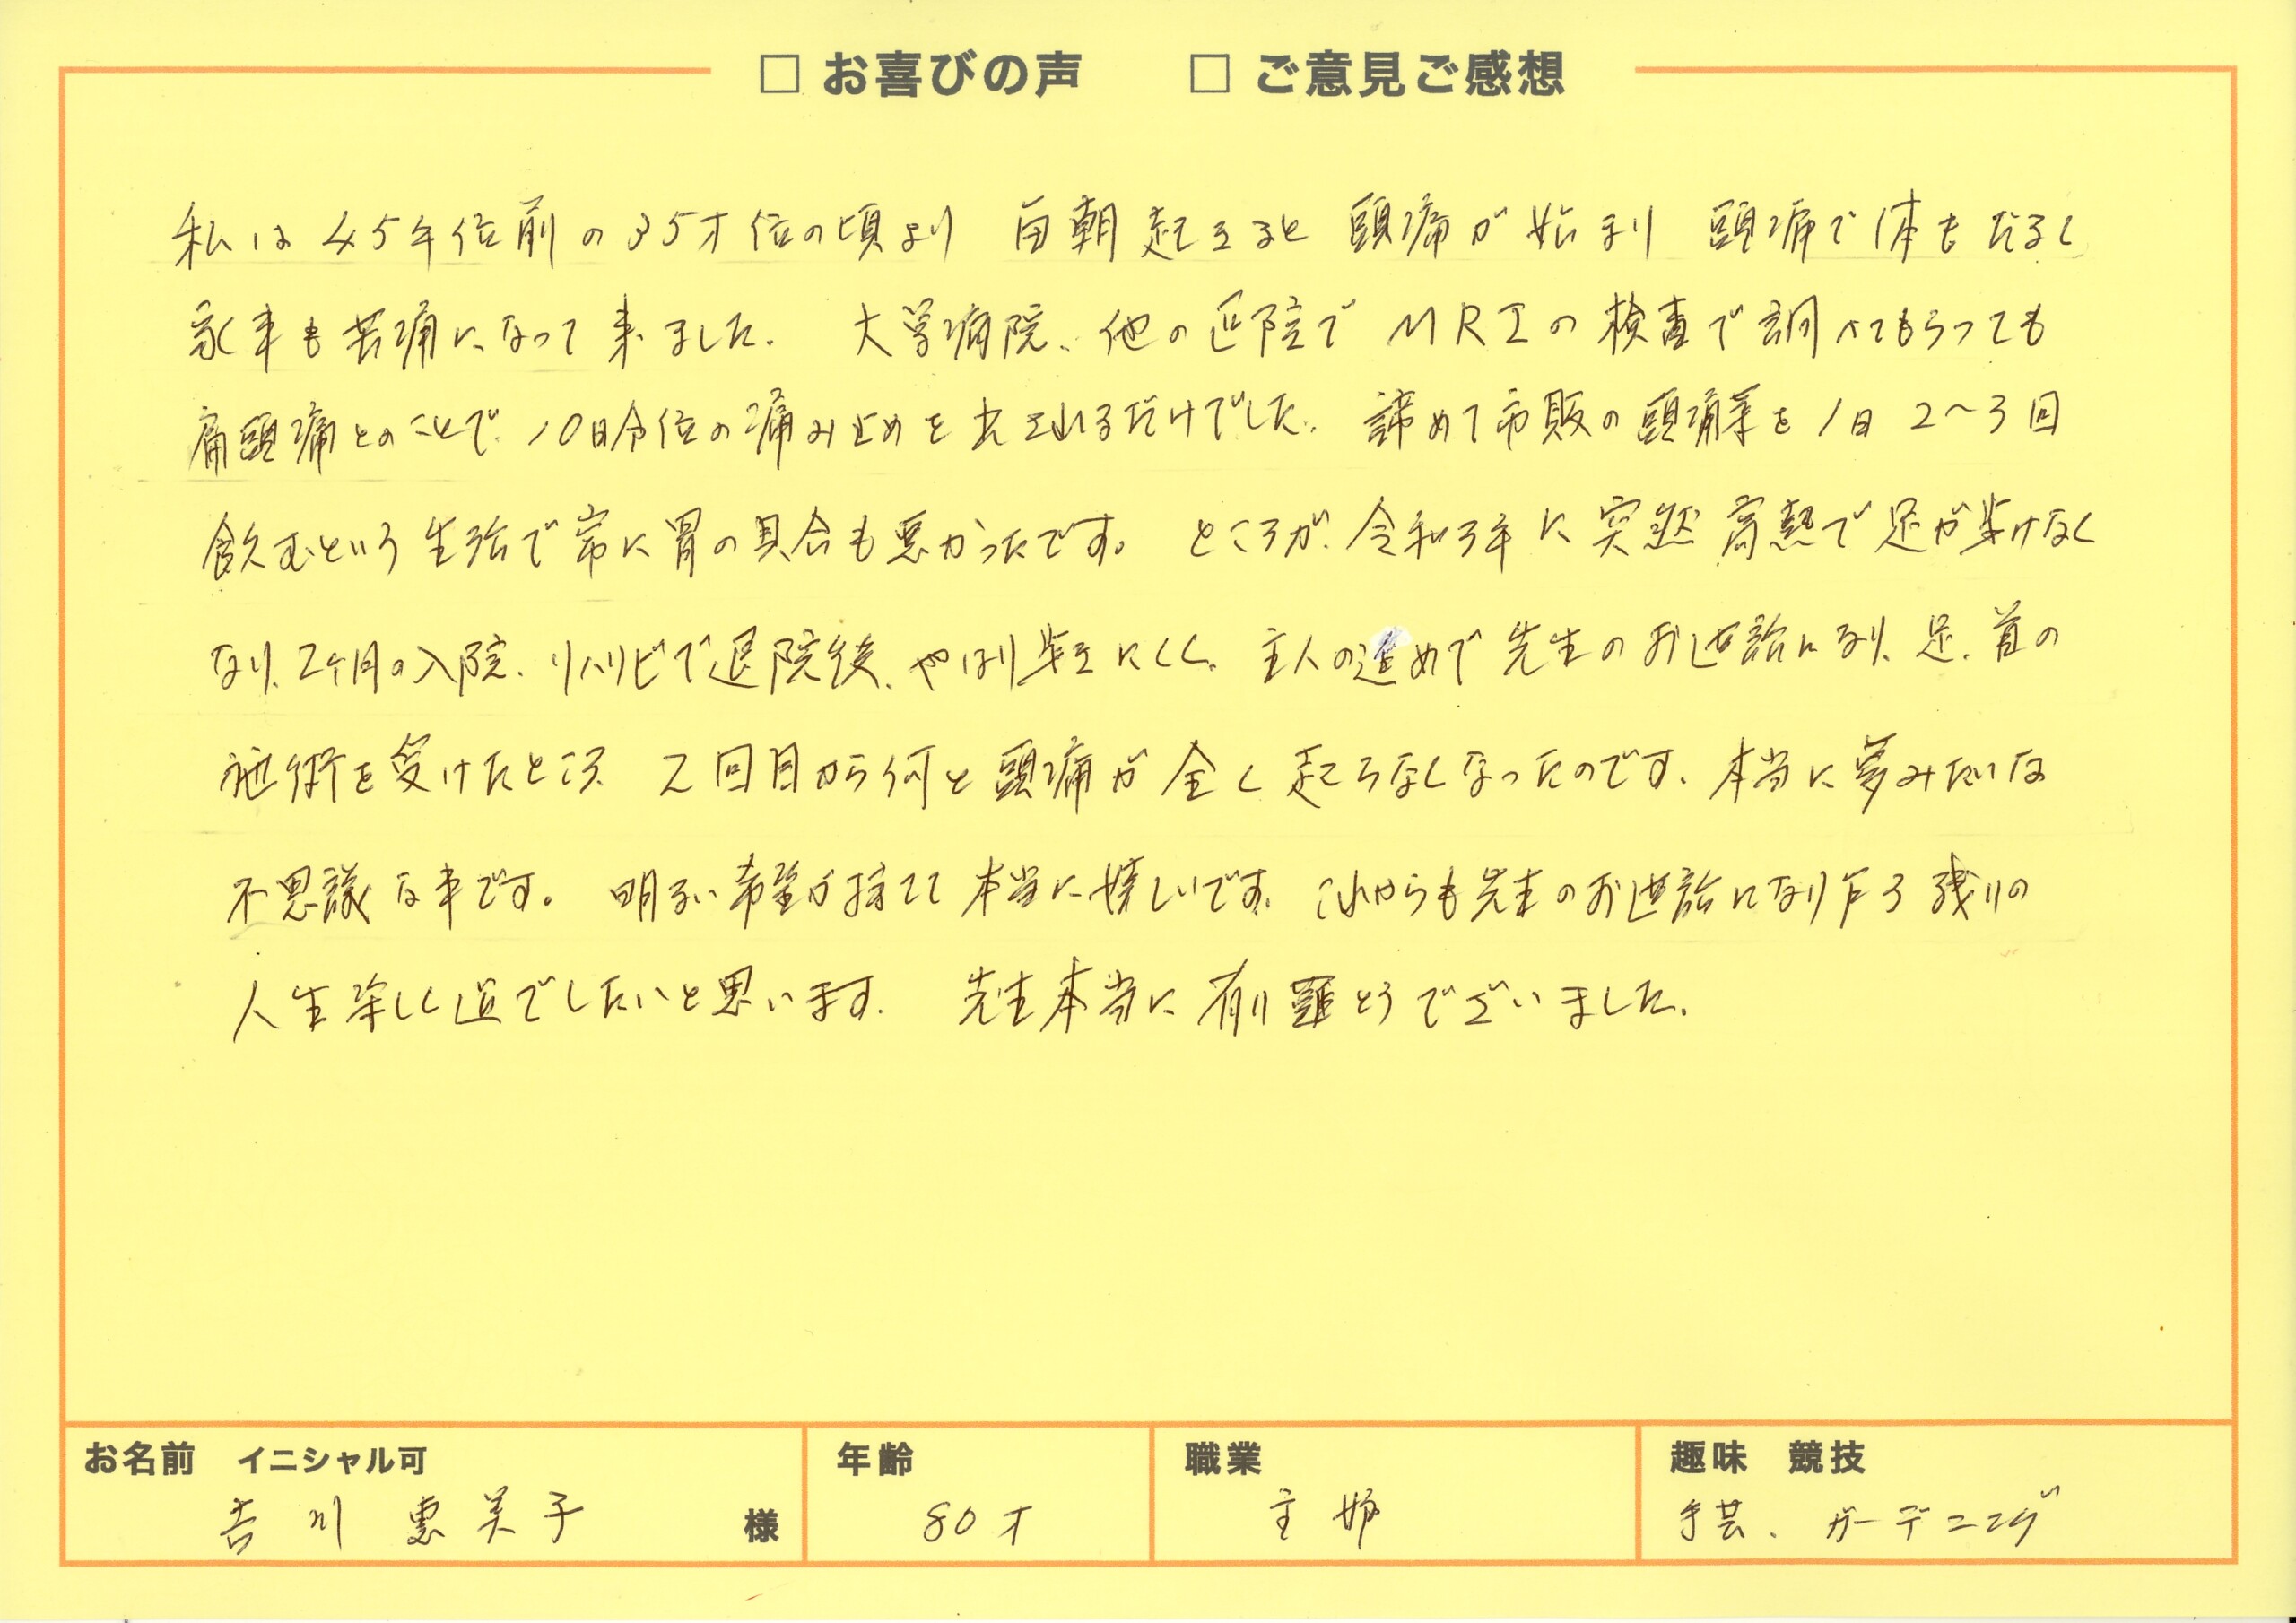 □ お喜びの声　□ ご意見ご感想
私は45年位前の35才位の頃より 毎朝起きると 頭痛が始まり 頭痛で体もだるく
家事も苦痛になって来ました。 大学病院、他の医院でMRIの検査で調べてもらっても
偏頭痛とのことで、10日分位の痛み止めを出されるだけでした。 諦めて市販の頭痛薬を1日2〜3回
飲むという生活で常に胃の具合も悪かったです。 ところが、令和3年に突然高熱で足が歩けなく
なり、2ケ月の入院、リハリビで退院後、やはり歩きにくく、主人の進めで先生のお世話になり、足、首の
施術を受けたところ 2回目から何と頭痛が全く起こらなくなったのです。本当に夢みたいな
不思議な事です。 明るい希望が持てて本当に嬉しいです。これからも先生のお世話になり乍ら残りの
人生楽しく過ごしたいと思います。 先生本当に有り難とうございました。
お名前　イニシャル可
吉川 恵美子 様
年齢
80才
職業
主婦
趣味　競技
手芸、ガーデニング